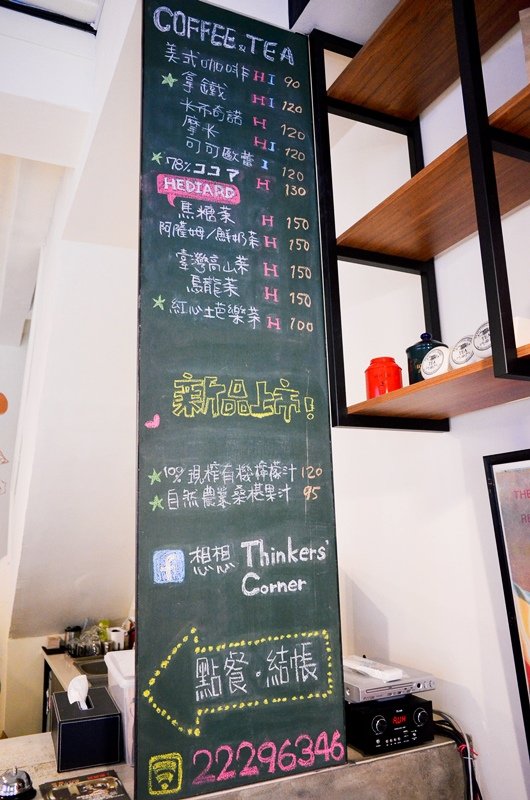 COFFEE & TEA
美式咖啡 H I 90
★ 拿鐵 H I 120
卡布奇諾 H 120
摩卡 H I 120
可可歐蕾 I 120
★ 78% ココア H 130
HEDIARD
焦糖茶 H 150
阿薩姆/鮮奶茶 H 150
臺灣高山茶 H 150
烏龍茶 H 150
★ 紅心土芭樂茶 H 100
新品上市!
★ 10% 現榨有機檸檬汁 120
★ 自然農業桑椹果汁 95
f 想想 Thinkers' Corner
點餐·結帳
22296346
TEA